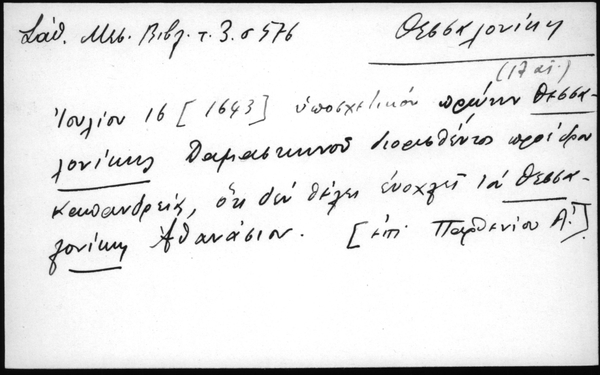 Σάθ. Μεσ. Βιβλ. τ. 3. σ 576
Θεσσαλονίκη
(17 αἰ.)
Ἰουλίου 16 [1643] ὑποσχετικὸν πρώην Θεσσα-
λονίκης Δαμασκηνοῦ διορισθέντος προέδρου
Κασσανδρείας, ὅτι δὲν θέλει ἐνοχλεῖ τὸν Θεσσα-
λονίκης Ἀθανάσιον. [ἐπὶ Παρθενίου Α΄.]